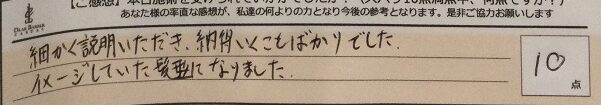 【ご感想】本日施術を受けられていかがでしたか？（スバリ10点満点中、何点ですか？）
あなた様の率直な感想が、私達の何よりの力となり今後の参考となります。是非ご協力お願いします
細かく説明いただき、納得いくことばかりでした。
イメージしていた髪型になりました。
10
点